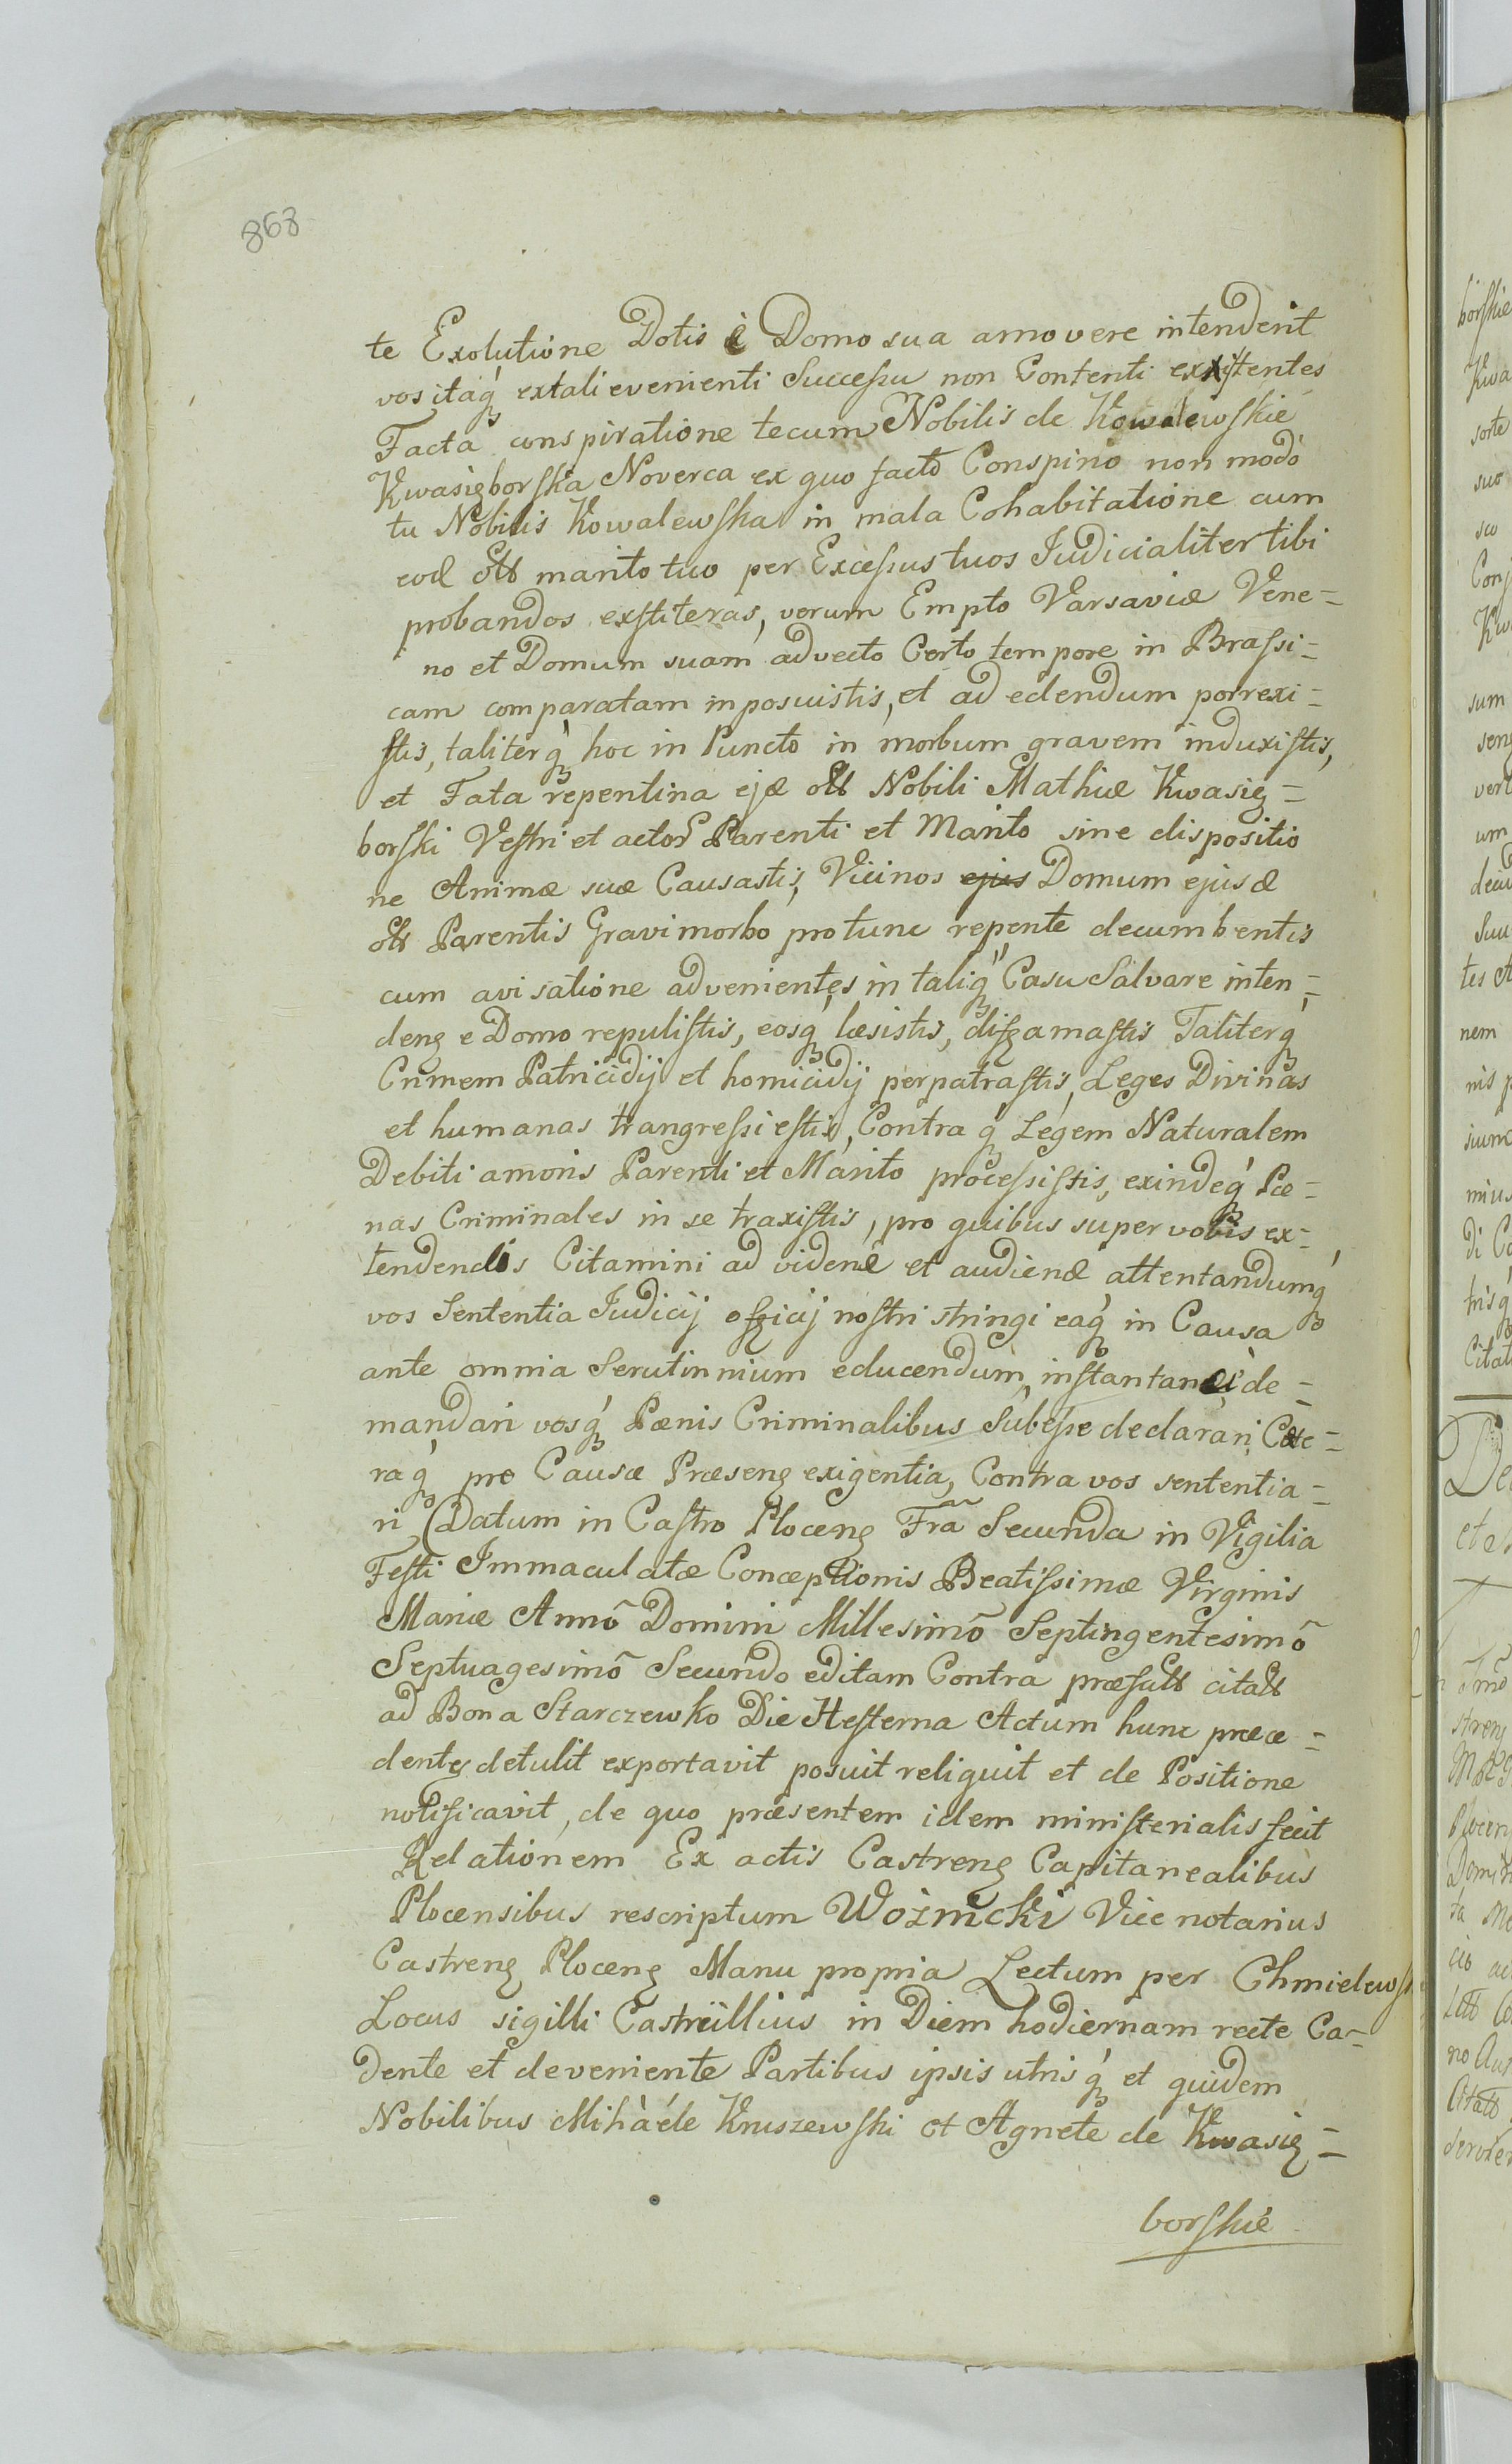 868
te Exolutione Dotis è Domo sua amovere intenderit
vos itaq́ꝫ ex tali evenienti Succeſsu non Contenti exxiſtentes
Facta conspiratione tecum Nobilis de Kowalewſkie
Kwasięborſka Noverca ex quo facto Conspino non modò
tu Nobilis Kowalewſka in mala Cohabitatione cum
eod̃ olt̃t marito tuo per Exceſsus tuos Judicialiter tibi
probandos exſtiteras, verum Empto Varsaviæ Vene=
no et Domum suam advecto Certo tempore in Braſsi=
cam comparatam inposuistis, et ad edendum porrexi=
ſtis, taliterq́ꝫ hoc in Puncto in morbum gravem induxiſtis,
et Fata repentina ejd̃ olt̃t Nobili Mathiæ Kwasię=
borſki Veſtri et actor̃ Parenti et Marito sine dispositio
ne Animæ suæ Causastis, Vicinos ejus Domum ejusd̃
olt̃t Parentis Gravi morbo pro tunc repente decumbentis
cum avisatione advenientes in taliq́ꝫ Casu Salvare inten=
denꝫ e Domo repuliſtis, eosq́ꝫ læsistis, diffamaſtis Taliterq́ꝫ
Crimem Patricidij et homicidij perpatraſtis, Leges Divinas
et humanas trangreſsi eſtis, Contraq́ꝫ Legem Naturalem
Debiti amoris Parenti et Marito proceſsiſtis, exindeq́ꝫ Pæ=
nas Criminales in se traxiſtis, pro quibus super vobis ex=
tendendis Citamini ad videnđ et audienđ attentandumq́ꝫ
vos Sententia Judicij officij noſtri stringi eaq́ꝫ in Causa
ante omnia Scrutinnium educendum, inſtantanei de=
mandari vosq́ꝫ Pænis Criminalibus Subeſse declarari, Cæte=
raq́ꝫ pro Causæ Præsenꝫ exigentia, Contra vos sententia=
ri (Datum in Caſtro Plocenꝫ Frã Secunda in Vigilia
Feſti Immaculatæ Conceptionis Beatiſsimæ Virginis
Mariæ Annõ Domini Millesimõ Septingentesimõ
Septuagesimõ Secundo editam Contra præfatt̃ citatt̃
ad Bona Starczewko Die Heſterna Actum hunc præce=
dentꝫ detulit exportavit posuit reliquit et de Positione
notificavit, de quo præsentem idem miniſterialis fecit
Relationem Ex actis Castrenꝫ Capitanealibus
Plocensibus rescriptum Woźnicki Vice notarius
Castrenꝫ Plocenꝫ Manu propria Lectum per Chmielewſ
Locus sigilli Castr illius in Diem hodiernam recte Ca=
dente et deveniente Partibus ipsis utrisq́ꝫ et quidem
Nobilibus Mihàéle Kruszewſki et Agnete de Kwasię=
borſkie